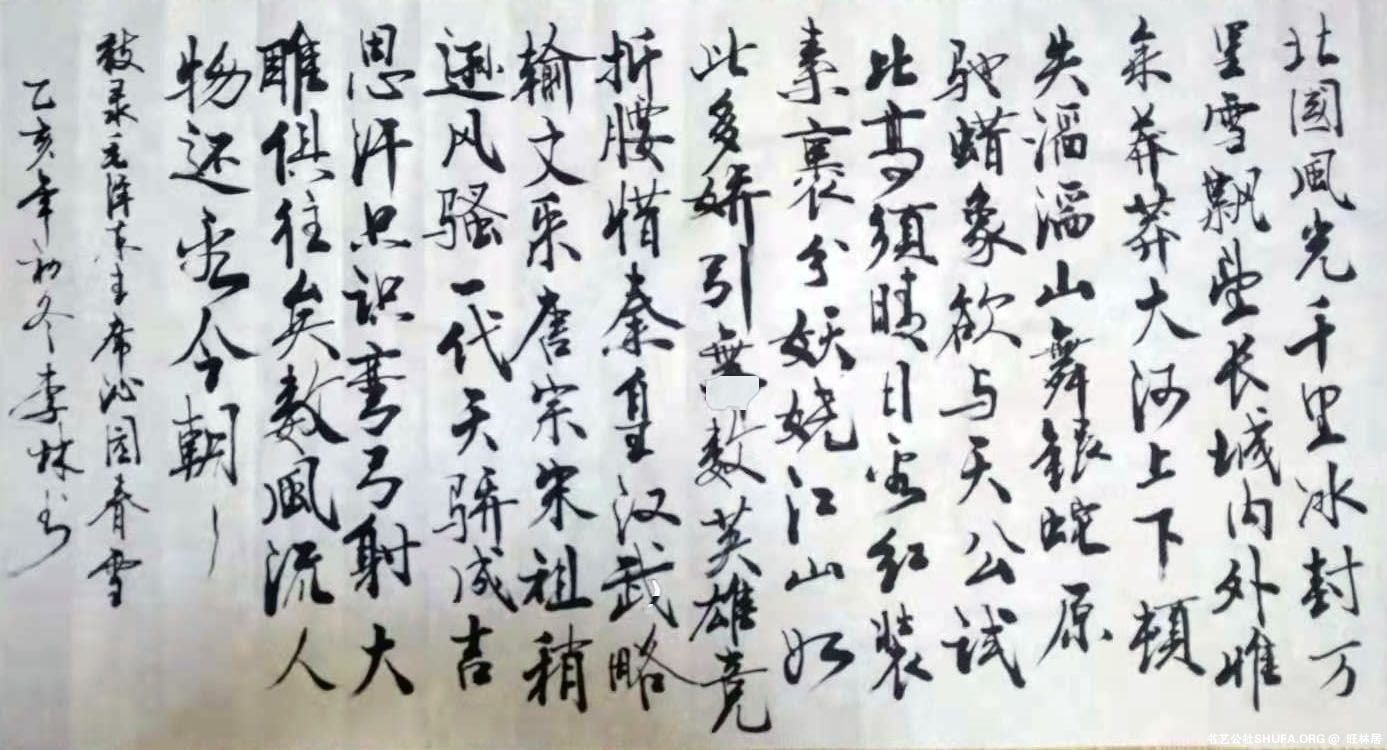 北國風光千里冰封万
里雪飘望长城内外惟
余莽莽大河上下頓
失滔滔山舞銀蛇原
驰蜡象欲与天公试
比高須晴日看红装
素裹分妖娆江山如
此多娇引無数英雄竞
折腰惜秦皇汉武略
输文采唐宗宋祖稍
逊风骚一代天骄成吉
思汗只识弯弓射大
雕俱往矣数風流人
物还看今朝
敬录毛泽东主席沁园春雪
乙亥年初冬李林书
书艺公社SHUFA.ORG @ 旺林居